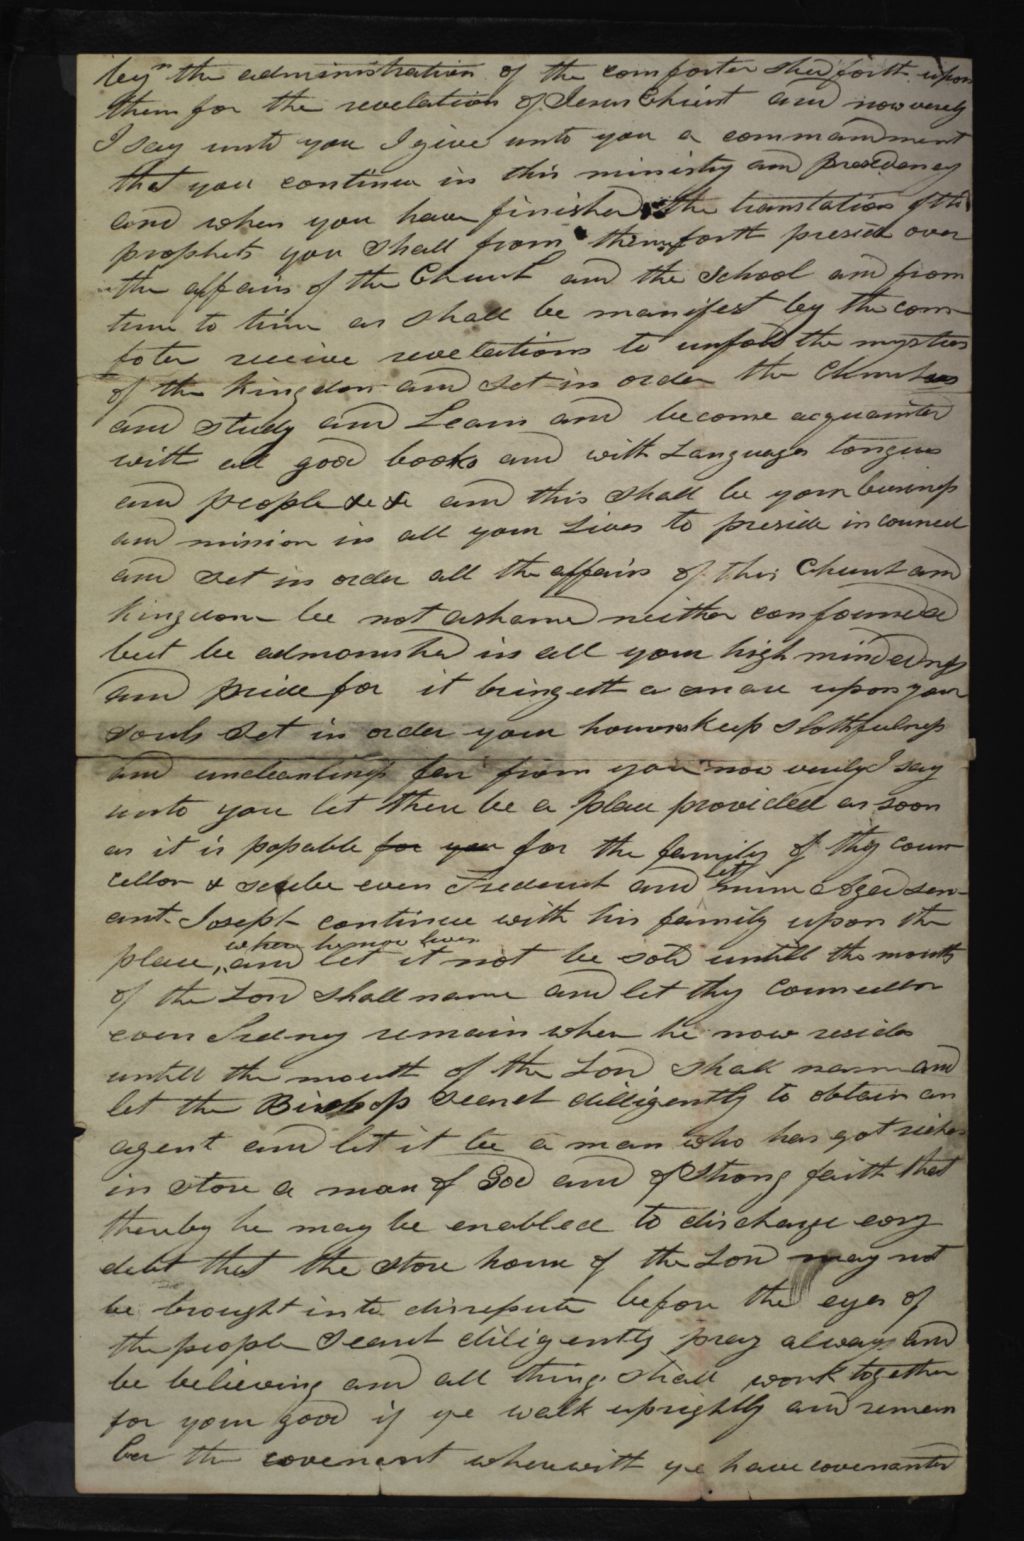 by the administration of the comforter shed forth upon
them for the revelation of Jesus Christ and now verely
I say unto you I give unto you a commandment
that you continue in this ministry and presidency
and when you have finished the translation of the
prophets you shall from thence forth preside over
the affairs of the Church and the School and from
time to time as shall be manifest by the com-
foter receive revelations to unfold the mysteries
of the kingdom and set in order the Churches
and study and Learn and become acquainted
with all good books and with Languages tongues
and people &c &c and this shall be your business
and mission in all your Lives to preside in councel
and set in order all the affairs of this Church and
kingdom be not ashamed neither confounded
but be admonished in all your high mindedness
and pride for it bringeth a snare upon your
souls set in order your houses keep slothfulness
and uncleanliness far from you now verily I say
unto you let there be a place provided as soon
as it is posable for you for the family of thy coun-
cellor & scribe even Frederick and let mine Aged serv-
ant Joseph continue with his family upon the
place, where he now lives and let it not be sold untill the mouth
of the Lord shall name and let thy Councellor
even Sidney remain where he now resides
untill the mouth of the Lord shall name and
let the Bishop search dilligently to obtain an
agent and let it be a man who has got riches
in store a man of God and of Strong faith that
thereby he may be enabled to discharge evry
debt that the store house of the Lord may not
be brought into disrepute before the eyes of
the people Search diligently pray always and
be believing and all things shall work together
for your good if ye walk uprightly and remem
ber the covenant wherewith ye have covenanted